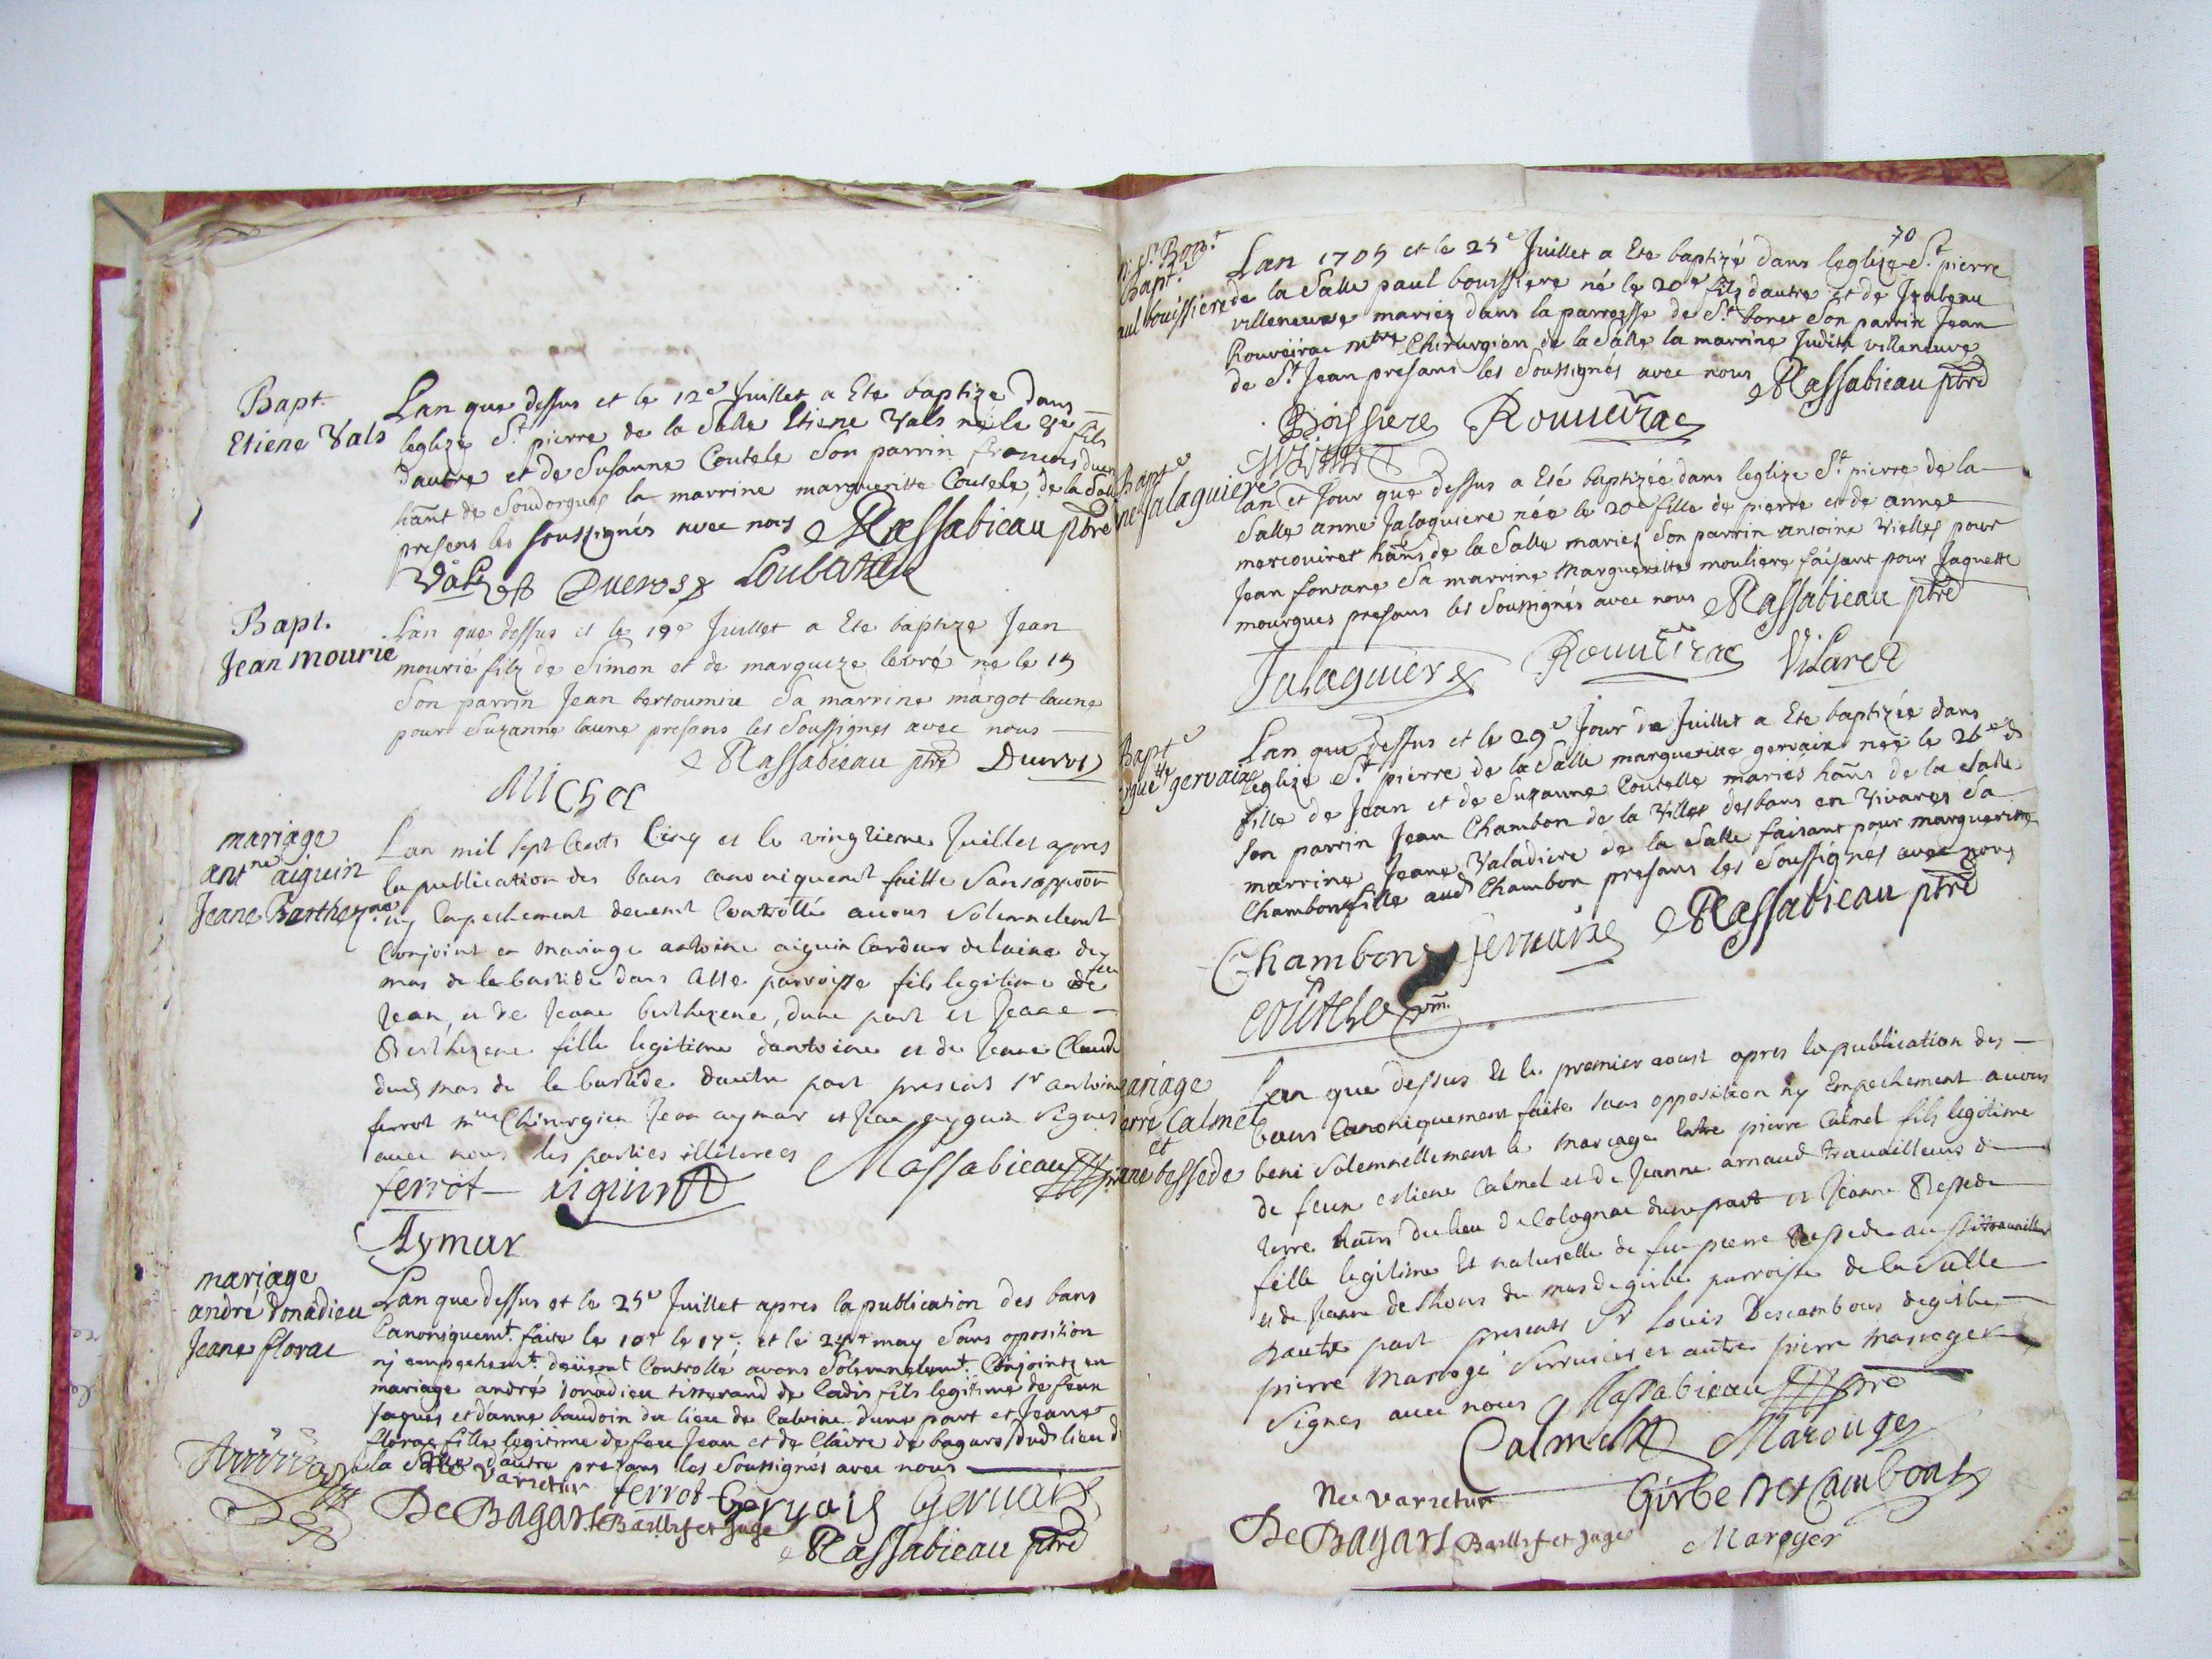 Bapt.
Etiene Vals
Lan que dessus et le 12e Juillet a Ete baptize Dans
leglize St. pierre de la Salle Etiene Vals né le
fils
dautre et de Susanne Coutele Son parrin francois
hant de Soudorgues la marrine margueritte Coutele, de la Salle
presens les soussignés avec nous Massabieau ptre
Vals Ducros Loubatieres
Bapt.
Jean mourie
Lan que dessus et le 19e Juillet a Ete baptize Jean
mourié filz de Simon et de marquize lebré né le 15
Son parrin Jean bertoumiu Sa marrine margot laune
pour Suzanne laune presans les Soussignes avec nous
Massabieau ptre Ducros
Michel
mariage
antne aiguin
Jeane Bartheze
Lan mil sept Cents Cinq et le vingtieme Juillet apres
la publication des bans canoniquemt faitte Sans oppoon
ny Empechement devemt Controllé avons Solennelemt
Conjoint en Mariage antoine aiguin Cardeur de laine du
mas de la bastide dans cette parroisse fils legitime de feu
Jean, et de Jeane berthezene, dune part et Jeane
Berthezene fille legitime dantoine et de Jeane Claude
dud mas de la bastide dautre part presens Sr antoine
ferrot mtre Chirurgien Jean aymar et Jean ayguin Signes
avec nous les parties illiterees Massabieau ptre
ferrot aiguin
Aymar
mariage
andré donadieu
Jeane florac
Lan que dessus et le 25e Juillet apres la publication des bans
Canoniquemt. faite le 10e le 17e et le 24e may Sans opposition
nj empechemt. deüemt Controllé avons Solemnelemt. Conjoints en
mariage andré donadieu tisserand de Cadis fils legitime de feux
Jaques et danne baudoin du lieu de Calvine dune part et Jeane
florac fille legitime de feu Jean et de Claire de bagars dud. lieu d
la Salle dautre presans les Soussignés avec nous
Ne varietur ferrot Gervais Gervais
De Bagars Baillif et Juge
Massabieau ptre
70
St. Bont.
Bapt.
aul bouissiere
Lan 1705 et le 25e Juillet a Ete baptizé dans leglize St. pierre
de la Salle paul bouissiere né le 20e filz dautre et de Jzabeau
villeneuve mariez dans la parroisse de St. bonet Son parrin Jean
Rouveirac mtre Chirurgien de la Salle la marrine Judith villeneuve
de St. Jean presans les Soussignés avec nous Massabieau ptre
Boissiere Rouveirac
Bapte
ne Jalaguiere
lan et Jour que dessus a Eté baptizée dans leglize St. pierre de la
Salle anne Jalaguiere née le 20e fille de pierre et de anne
mercouiret hans de la Salle mariez Son parrin antoine Vielles pour
Jean fontane Sa marrine Margueritte mouliere faisant pour Jaquette
mourgues presans les Soussignés avec nous Massabieau ptre
Jalaguiere Rouveirac Vilaret
Bapte
guete gervaize
Lan que dessus et le 29e Jour de Juillet a Ete baptizée dans
leglize St. pierre de la Salle margueritte gervaize née le 26e
fille de Jean et de Suzanne Coutelle mariés hans de la Salle
Son parrin Jean Chambon de la Villes desbans en Vivares Sa
marrine Jeane Valadiere de la Salle faisant pour margueritte
Chambon fille aud Chambon presans les Soussignés avec nous
Chambon Gervais Massabieau ptre
coutelle
ariage
erre Calmel
et
anne bessede
Lan que dessus Et le premier aoust apres la publication des
bans Canoniquement faite Sans opposition ny Empechement avons
beni Solemnellement le mariage Entre pierre Calmel fils legitime
de feux etiene Calmel et de Jeanne arnaud travailleur de
terre hans du lieu de Colognac dune part et Jeanne Bessede
fille legitime Et naturelle de feu pierre Bessede aussi travailleur
et de Jeanne deshons du mas de girbe parroisse de la Salle
dautre part presents Sr. Louis Descambous de girbe
pierre Maroge Serrurier et autre pierre maroger
Signes avec nous Massabieau ptre
Calmel Marouges
Ne varietur Girbe Descambous
De Bagars Baillif et Juge Maroger